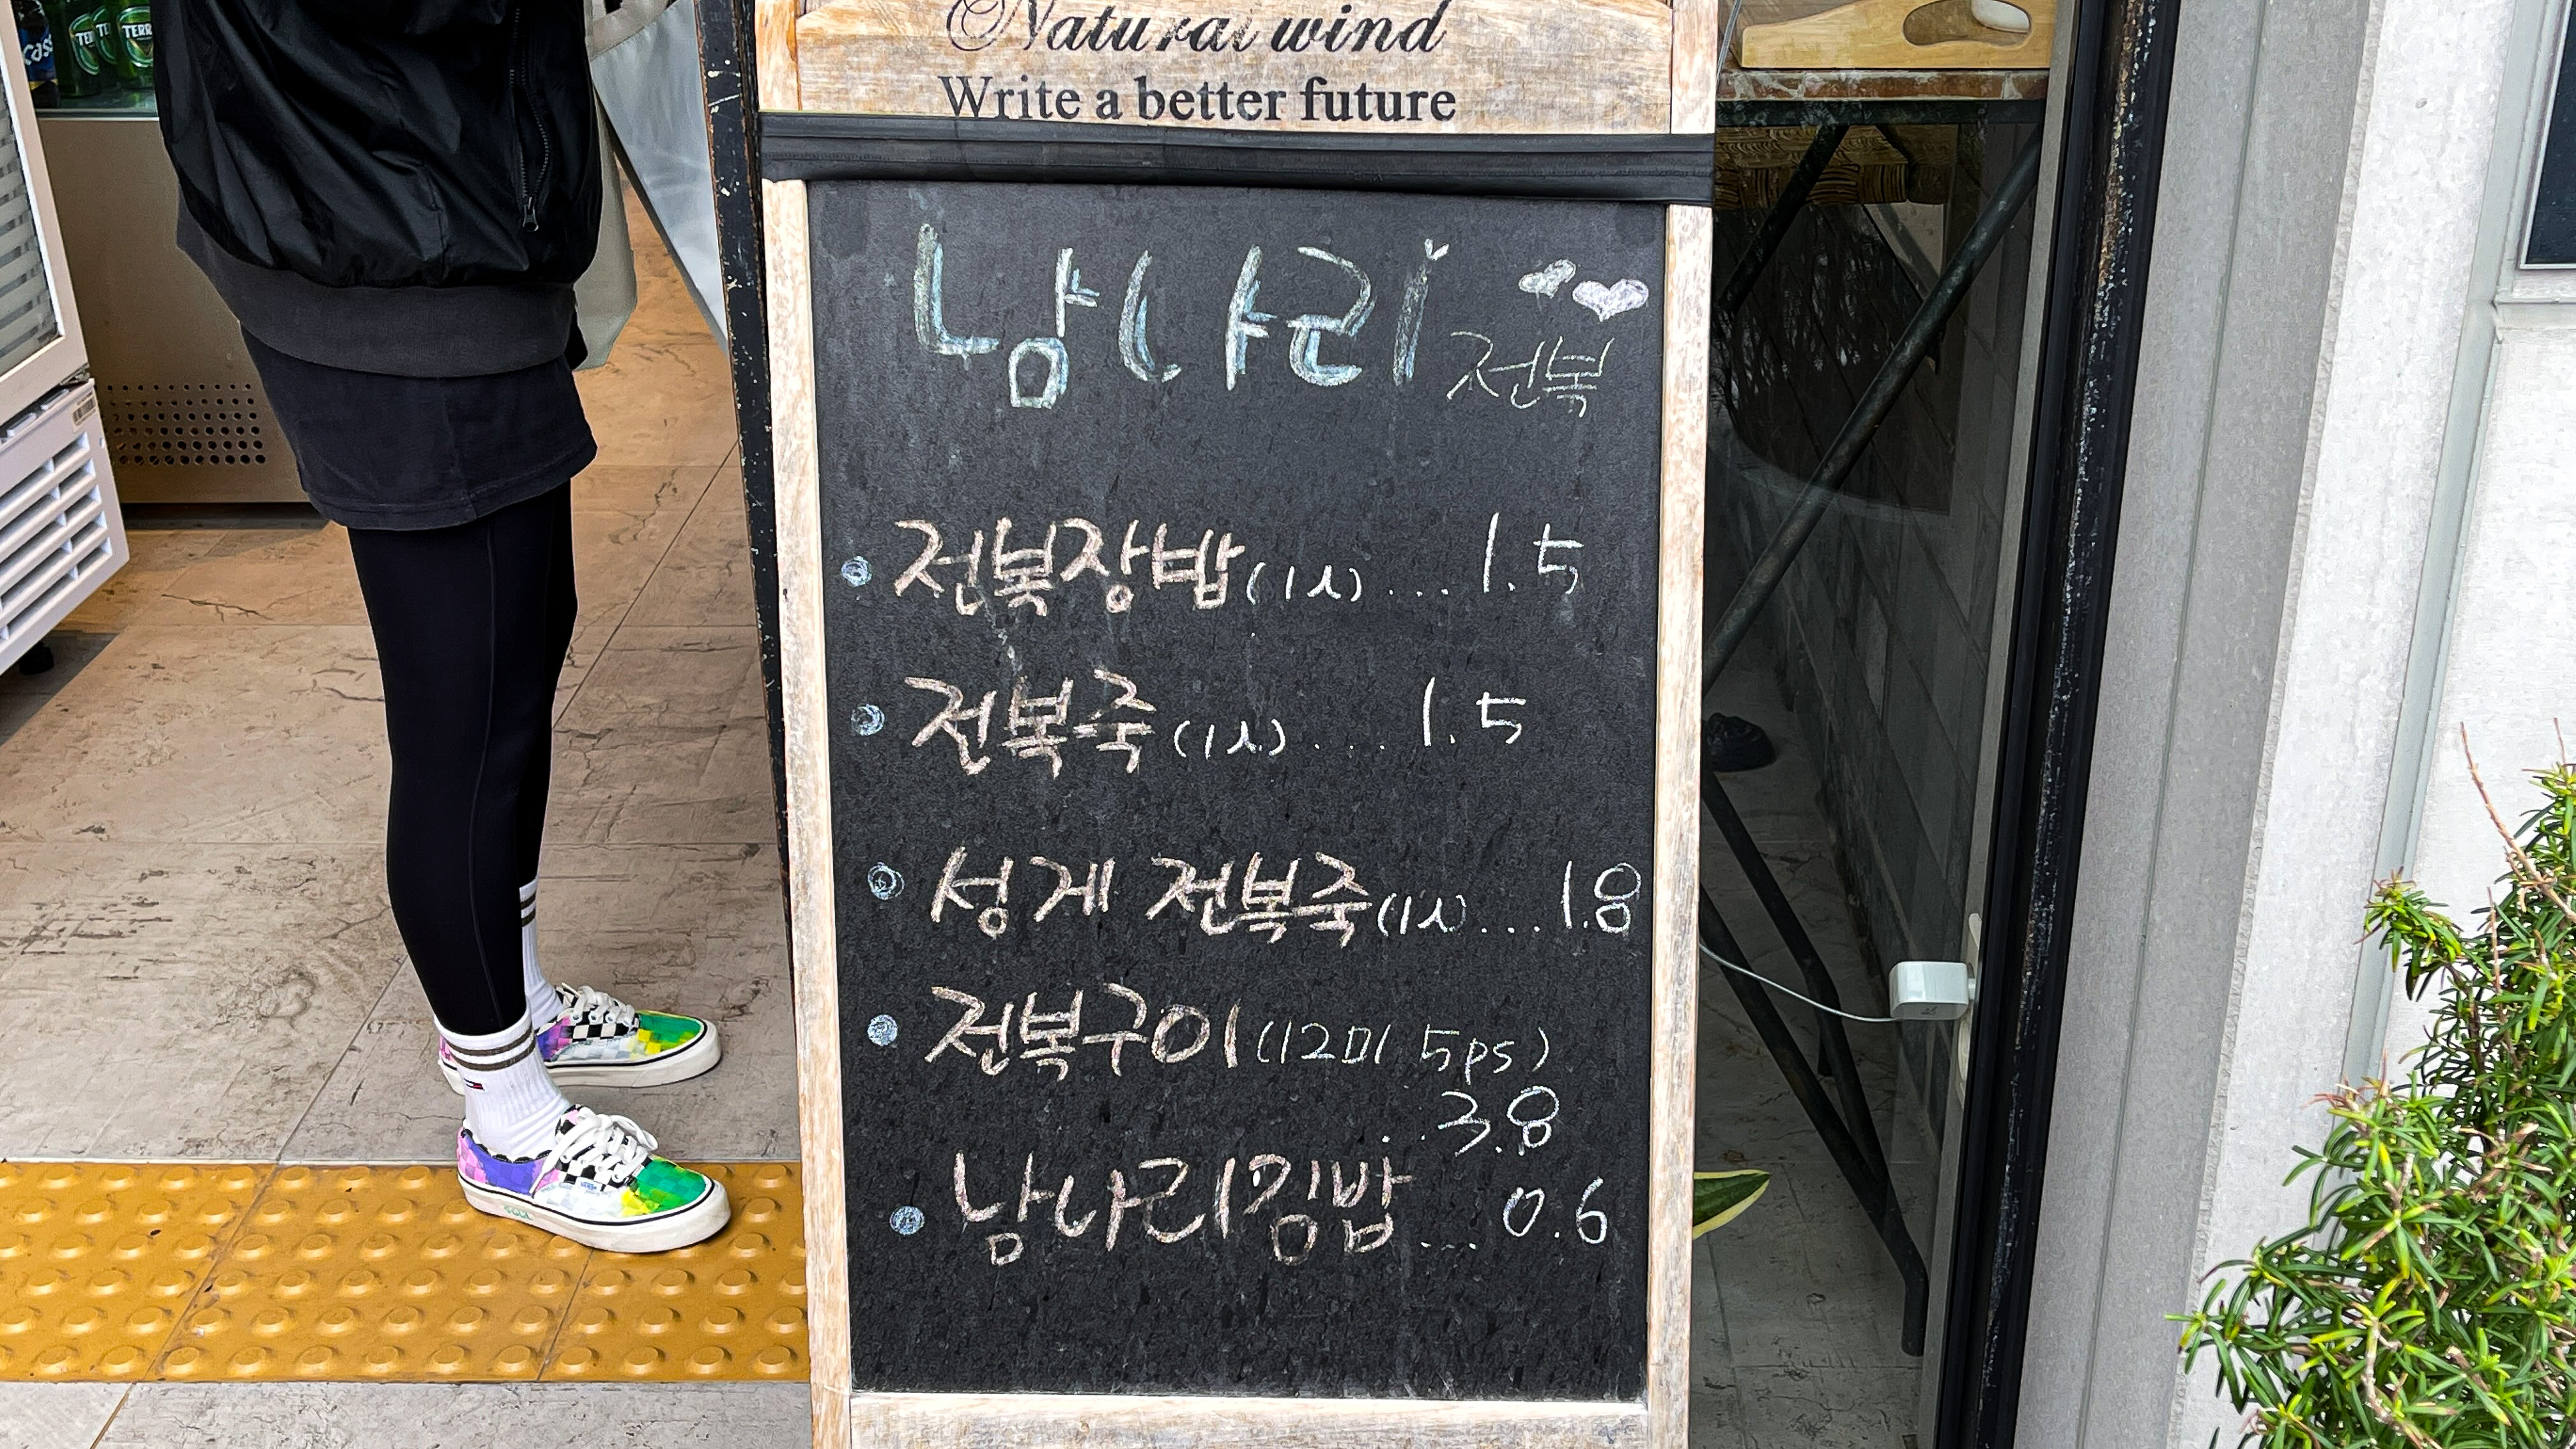 Natural wind
Write a better future
남나리
전복
전복장밥(1人)...1.5
전복죽(1人)....1.5
성게 전복죽(1人)...1.8
전복구이(12미 5ps)
...3.8
남나리김밥...0.6
TERRA
Cass